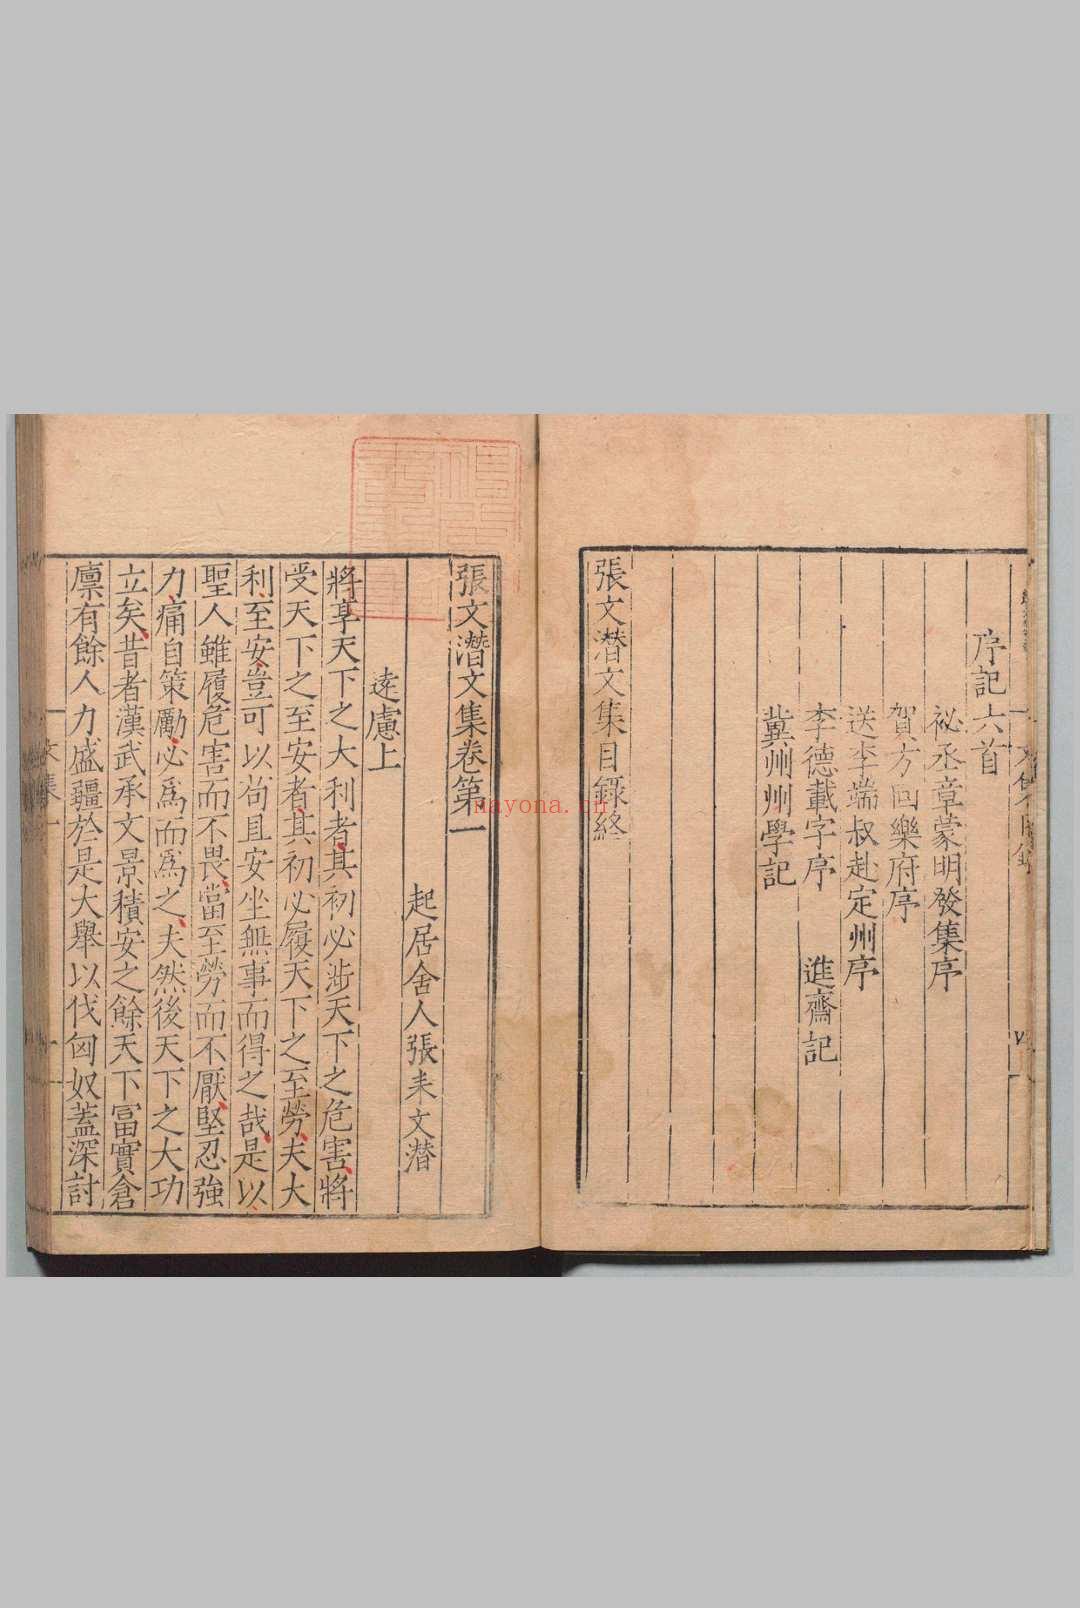 序記六首
祕丞章蒙明發集序
賀方回樂府序
送李端叔赴定州序
李德載字序　進齋記
冀州州學記
張文潛文集目錄終
張文潛文集卷第一
起居舍人張耒文潛
遠慮上
將享天下之大利者其初必涉天下之危害將
受天下之至安者其初必履天下之至勞夫大
利至安豈可以苟且安坐無事而得之哉是以
聖人雖履危害而不畏當至勞而不厭堅忍強
力痛自策勵必爲而爲之夫然後天下之大功
立矣昔者漢武承文景積安之餘天下富實倉
廪有餘人力盛疆於是大舉以伐匈奴蓋深討
nayona.cn